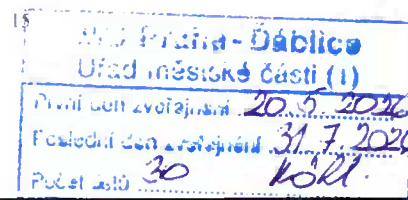 15
MČ Praha - Ďáblice
Úřad městské části (1)
První den zveřejnění 20. 5. 2026
Poslední den zveřejnění 31. 7. 2026
Počet listů 30